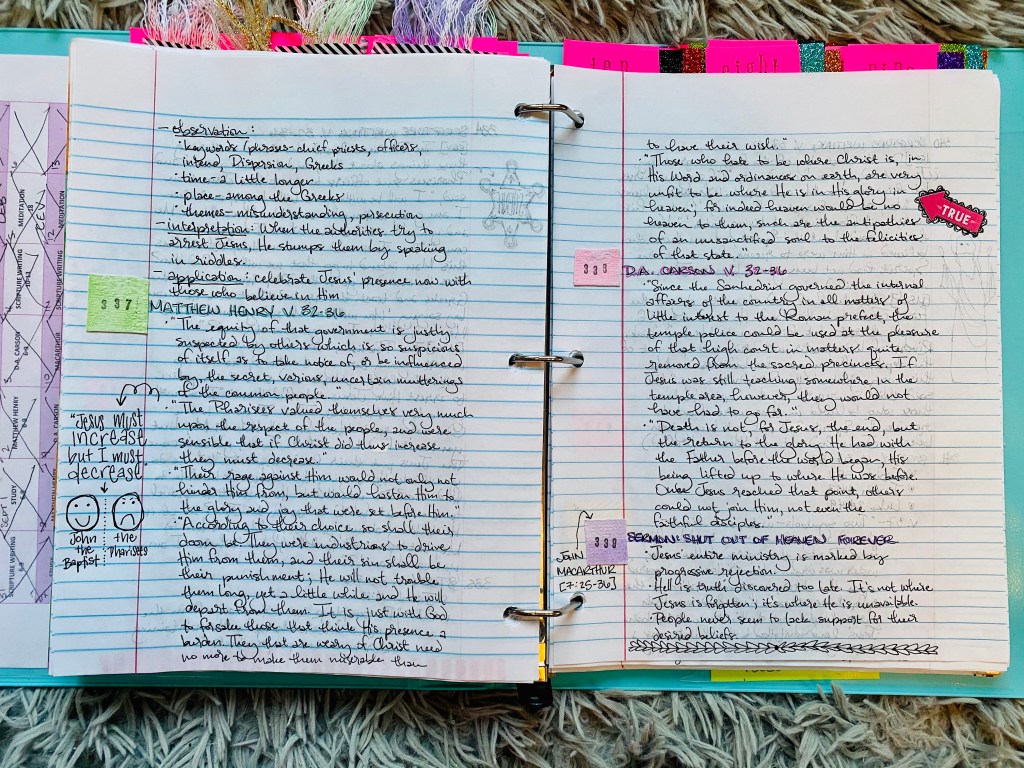 ten
eight
nine
- observation:
• keywords/phrases - chief priests, officers,
intend, Dispersion, Greeks
• time - a little longer
• place - among the Greeks
• themes - misunderstanding, persecution
- interpretation: When the authorities try to
arrest Jesus, He stumps them by speaking
in riddles.
- application: celebrate Jesus' presence now with
those who believe in Him
337
MATTHEW HENRY V. 32-36
• "The equity of that government is justly
suspected by others which is so suspicious
of itself as to take notice of, or be influenced
by, the secret, various, uncertain mutterings
of the common people."
• "The Pharisees valued themselves very much
upon the respect of the people, and were
sensible that if Christ did thus increase
they must decrease."
• "Their rage against Him would not only not
hinder Him from, but would hasten Him to
the glory and joy that were set before Him."
• "According to their choice so shall their
doom be. They were industrious to drive
Him from them, and their sin shall be
their punishment; He will not trouble
them long, yet a little while and He will
depart from them. It is just with God
to forsake those that think His presence a
burden. They that are weary of Christ need
no more to make them miserable than
"Jesus must
increase
but I must
decrease."
John
the
Baptist
the
Pharisees
to have their wish."
• "Those who hate to be where Christ is, in
His Word and ordinances on earth, are very
unfit to be where He is in His glory in
heaven; for indeed heaven would be no
heaven to them, such are the antipathies
of an unsanctified soul to the felicities
of that state."
-TRUE-
338
D.A. CARSON V. 32-36
• "Since the Sanhedrin governed the internal
affairs of the country in all matters of
little interest to the Roman prefect, the
temple police could be used at the pleasure
of that high court in matters quite
removed from the sacred precincts. If
Jesus was still teaching somewhere in the
temple area, however, they would not
have had to go far."
• "Death is not, for Jesus, the end, but
the return to the glory He had with
the Father before the world began, His
being lifted up to where He was before.
Once Jesus reached that point, others
could not join Him, not even the
faithful disciples.
339
SERMON: SHUT OUT OF HEAVEN FOREVER
JOHN
MACARTHUR
[7:25-36]
• Jesus' entire ministry is marked by
progressive rejection.
• Hell is truth discovered too late. It's not where
Jesus is forgotten; it's where He is unavailable.
• People never seem to lack support for their
desired beliefs
MEDITATION
SCRIPTURE WRITING
D.A. CARSON
MATTHEW HENRY
STUDY
SCRIPTURE WRITING
MEDITATION
SCRIPTURE WRITING
MACARTHUR
D.A. CARSON